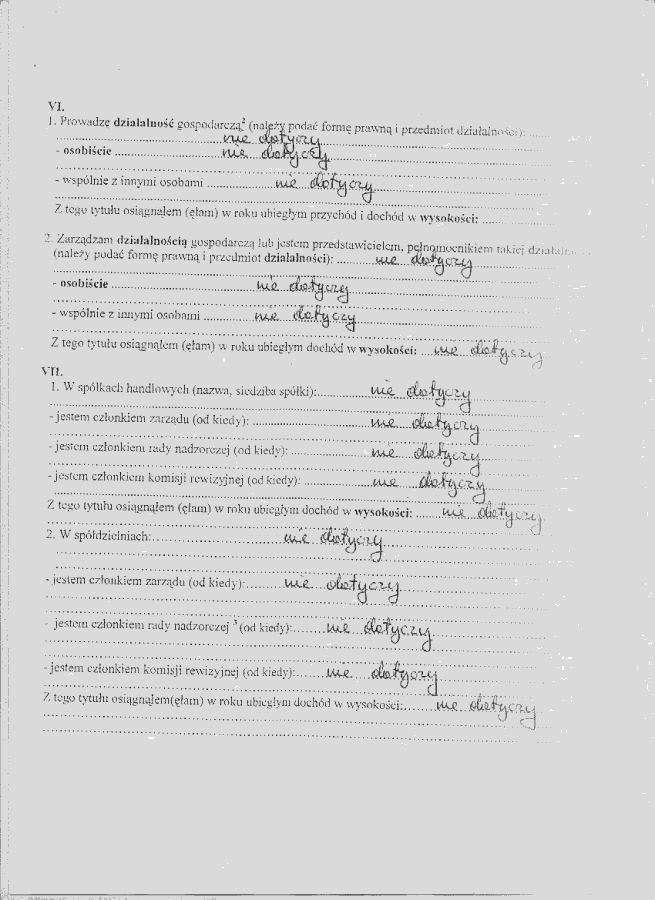 VI.
1. Prowadzę działalność gospodarczą² (należy podać formę prawną i przedmiot działalności): ......
nie dotyczy
- osobiście ........ nie dotyczy
- wspólnie z innymi osobami ........ nie dotyczy
Z tego tytułu osiągnąłem (ęłam) w roku ubiegłym przychód i dochód w wysokości: ........
2. Zarządzam działalnością gospodarczą lub jestem przedstawicielem, pełnomocnikiem takiej
(należy podać formę prawną i przedmiot działalności): ........ nie dotyczy
- osobiście ........ nie dotyczy
- wspólnie z innymi osobami ........ nie dotyczy
Z tego tytułu osiągnąłem (ęłam) w roku ubiegłym dochód w wysokości: .... nie dotyczy
VII.
1. W spółkach handlowych (nazwa, siedziba spółki):........ nie dotyczy
- jestem członkiem zarządu (od kiedy): ........ nie dotyczy
- jestem członkiem rady nadzorczej (od kiedy): ........ nie dotyczy
- jestem członkiem komisji rewizyjnej (od kiedy): ........ nie dotyczy
Z tego tytułu osiągnąłem (ęłam) w roku ubiegłym dochód w wysokości: ........ nie dotyczy
2. W spółdzielniach:........ nie dotyczy
- jestem członkiem zarządu (od kiedy):........ nie dotyczy
- jestem członkiem rady nadzorczej ³ (od kiedy):........ nie dotyczy
- jestem członkiem komisji rewizyjnej (od kiedy):........ nie dotyczy
Z tego tytułu osiągnąłem(ęłam) w roku ubiegłym dochód w wysokości:........ nie dotyczy